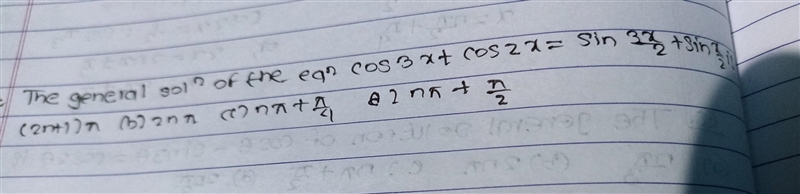 The general sol^n of the eq^n cos3x + cos2x = sin 3x/2 + sin x/2 is
(2n+1)π (b) 2nπ (c) nπ + π/4 d) 2nπ + π/2